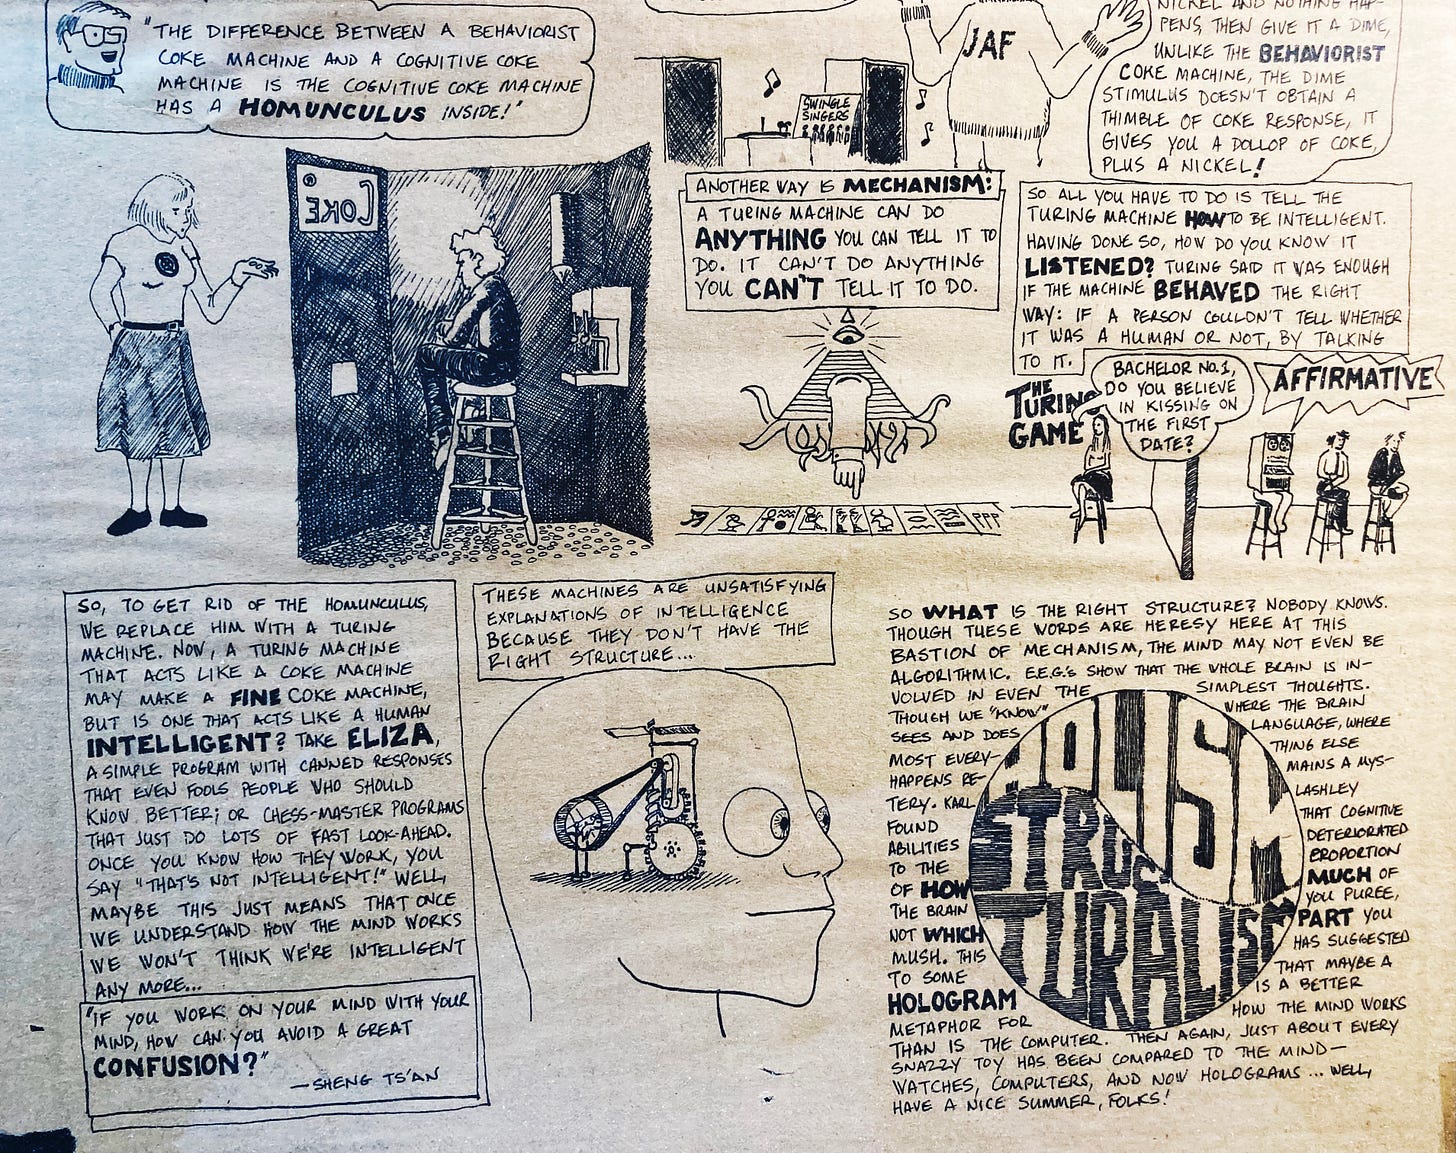 "THE DIFFERENCE BETWEEN A BEHAVIORIST
COKE MACHINE AND A COGNITIVE COKE
MACHINE IS THE COGNITIVE COKE MACHINE
HAS A HOMUNCULUS INSIDE!"
COKE ®
JAF
SWINGLE
SINGERS
NICKEL AND NOTHING HAP-
PENS, THEN GIVE IT A DIME,
UNLIKE THE BEHAVIORIST
COKE MACHINE, THE DIME
STIMULUS DOESN'T OBTAIN A
THIMBLE OF COKE RESPONSE, IT
GIVES YOU A DOLLOP OF COKE,
PLUS A NICKEL!
ANOTHER WAY IS MECHANISM:
A TURING MACHINE CAN DO
ANYTHING YOU CAN TELL IT TO
DO. IT CAN'T DO ANYTHING
YOU CAN'T TELL IT TO DO.
SO ALL YOU HAVE TO DO IS TELL THE
TURING MACHINE HOW TO BE INTELLIGENT.
HAVING DONE SO, HOW DO YOU KNOW IT
LISTENED? TURING SAID IT WAS ENOUGH
IF THE MACHINE BEHAVED THE RIGHT
WAY: IF A PERSON COULDN'T TELL WHETHER
IT WAS A HUMAN OR NOT, BY TALKING
TO IT.
THE
TURING
GAME
BACHELOR NO.1,
DO YOU BELIEVE
IN KISSING ON
THE FIRST
DATE?
AFFIRMATIVE
SO, TO GET RID OF THE HOMUNCULUS,
WE REPLACE HIM WITH A TURING
MACHINE. NOW, A TURING MACHINE
THAT ACTS LIKE A COKE MACHINE
MAY MAKE A FINE COKE MACHINE,
BUT IS ONE THAT ACTS LIKE A HUMAN
INTELLIGENT? TAKE ELIZA,
A SIMPLE PROGRAM WITH CANNED RESPONSES
THAT EVEN FOOLS PEOPLE WHO SHOULD
KNOW BETTER; OR CHESS-MASTER PROGRAMS
THAT JUST DO LOTS OF FAST LOOK-AHEAD.
ONCE YOU KNOW HOW THEY WORK, YOU
SAY "THAT'S NOT INTELLIGENT!" WELL,
MAYBE THIS JUST MEANS THAT ONCE
WE UNDERSTAND HOW THE MIND WORKS
WE WON'T THINK WE'RE INTELLIGENT
ANY MORE...
"IF YOU WORK ON YOUR MIND WITH YOUR
MIND, HOW CAN YOU AVOID A GREAT
CONFUSION?"
—SHENG TS'AN
THESE MACHINES ARE UNSATISFYING
EXPLANATIONS OF INTELLIGENCE
BECAUSE THEY DON'T HAVE THE
RIGHT STRUCTURE...
SO WHAT IS THE RIGHT STRUCTURE? NOBODY KNOWS.
THOUGH THESE WORDS ARE HERESY HERE AT THIS
BASTION OF MECHANISM, THE MIND MAY NOT EVEN BE
ALGORITHMIC. E.E.G.'S SHOW THAT THE WHOLE BRAIN IS IN-
VOLVED IN EVEN THE SIMPLEST THOUGHTS.
THOUGH WE "KNOW" WHERE THE BRAIN
SEES AND DOES LANGUAGE, WHERE
MOST EVERY- THING ELSE
HAPPENS RE- MAINS A MYS-
TERY. KARL LASHLEY
FOUND THAT COGNITIVE
ABILITIES DETERIORATED
TO THE PROPORTION
OF HOW MUCH OF
THE BRAIN YOU PUREE,
NOT WHICH PART YOU
MUSH. THIS HAS SUGGESTED
TO SOME THAT MAYBE A
HOLOGRAM IS A BETTER
METAPHOR FOR HOW THE MIND WORKS
THAN IS THE COMPUTER. THEN AGAIN, JUST ABOUT EVERY
SNAZZY TOY HAS BEEN COMPARED TO THE MIND—
WATCHES, COMPUTERS, AND NOW HOLOGRAMS... WELL,
HAVE A NICE SUMMER, FOLKS!
HOLISM
STRUC
TURALISM